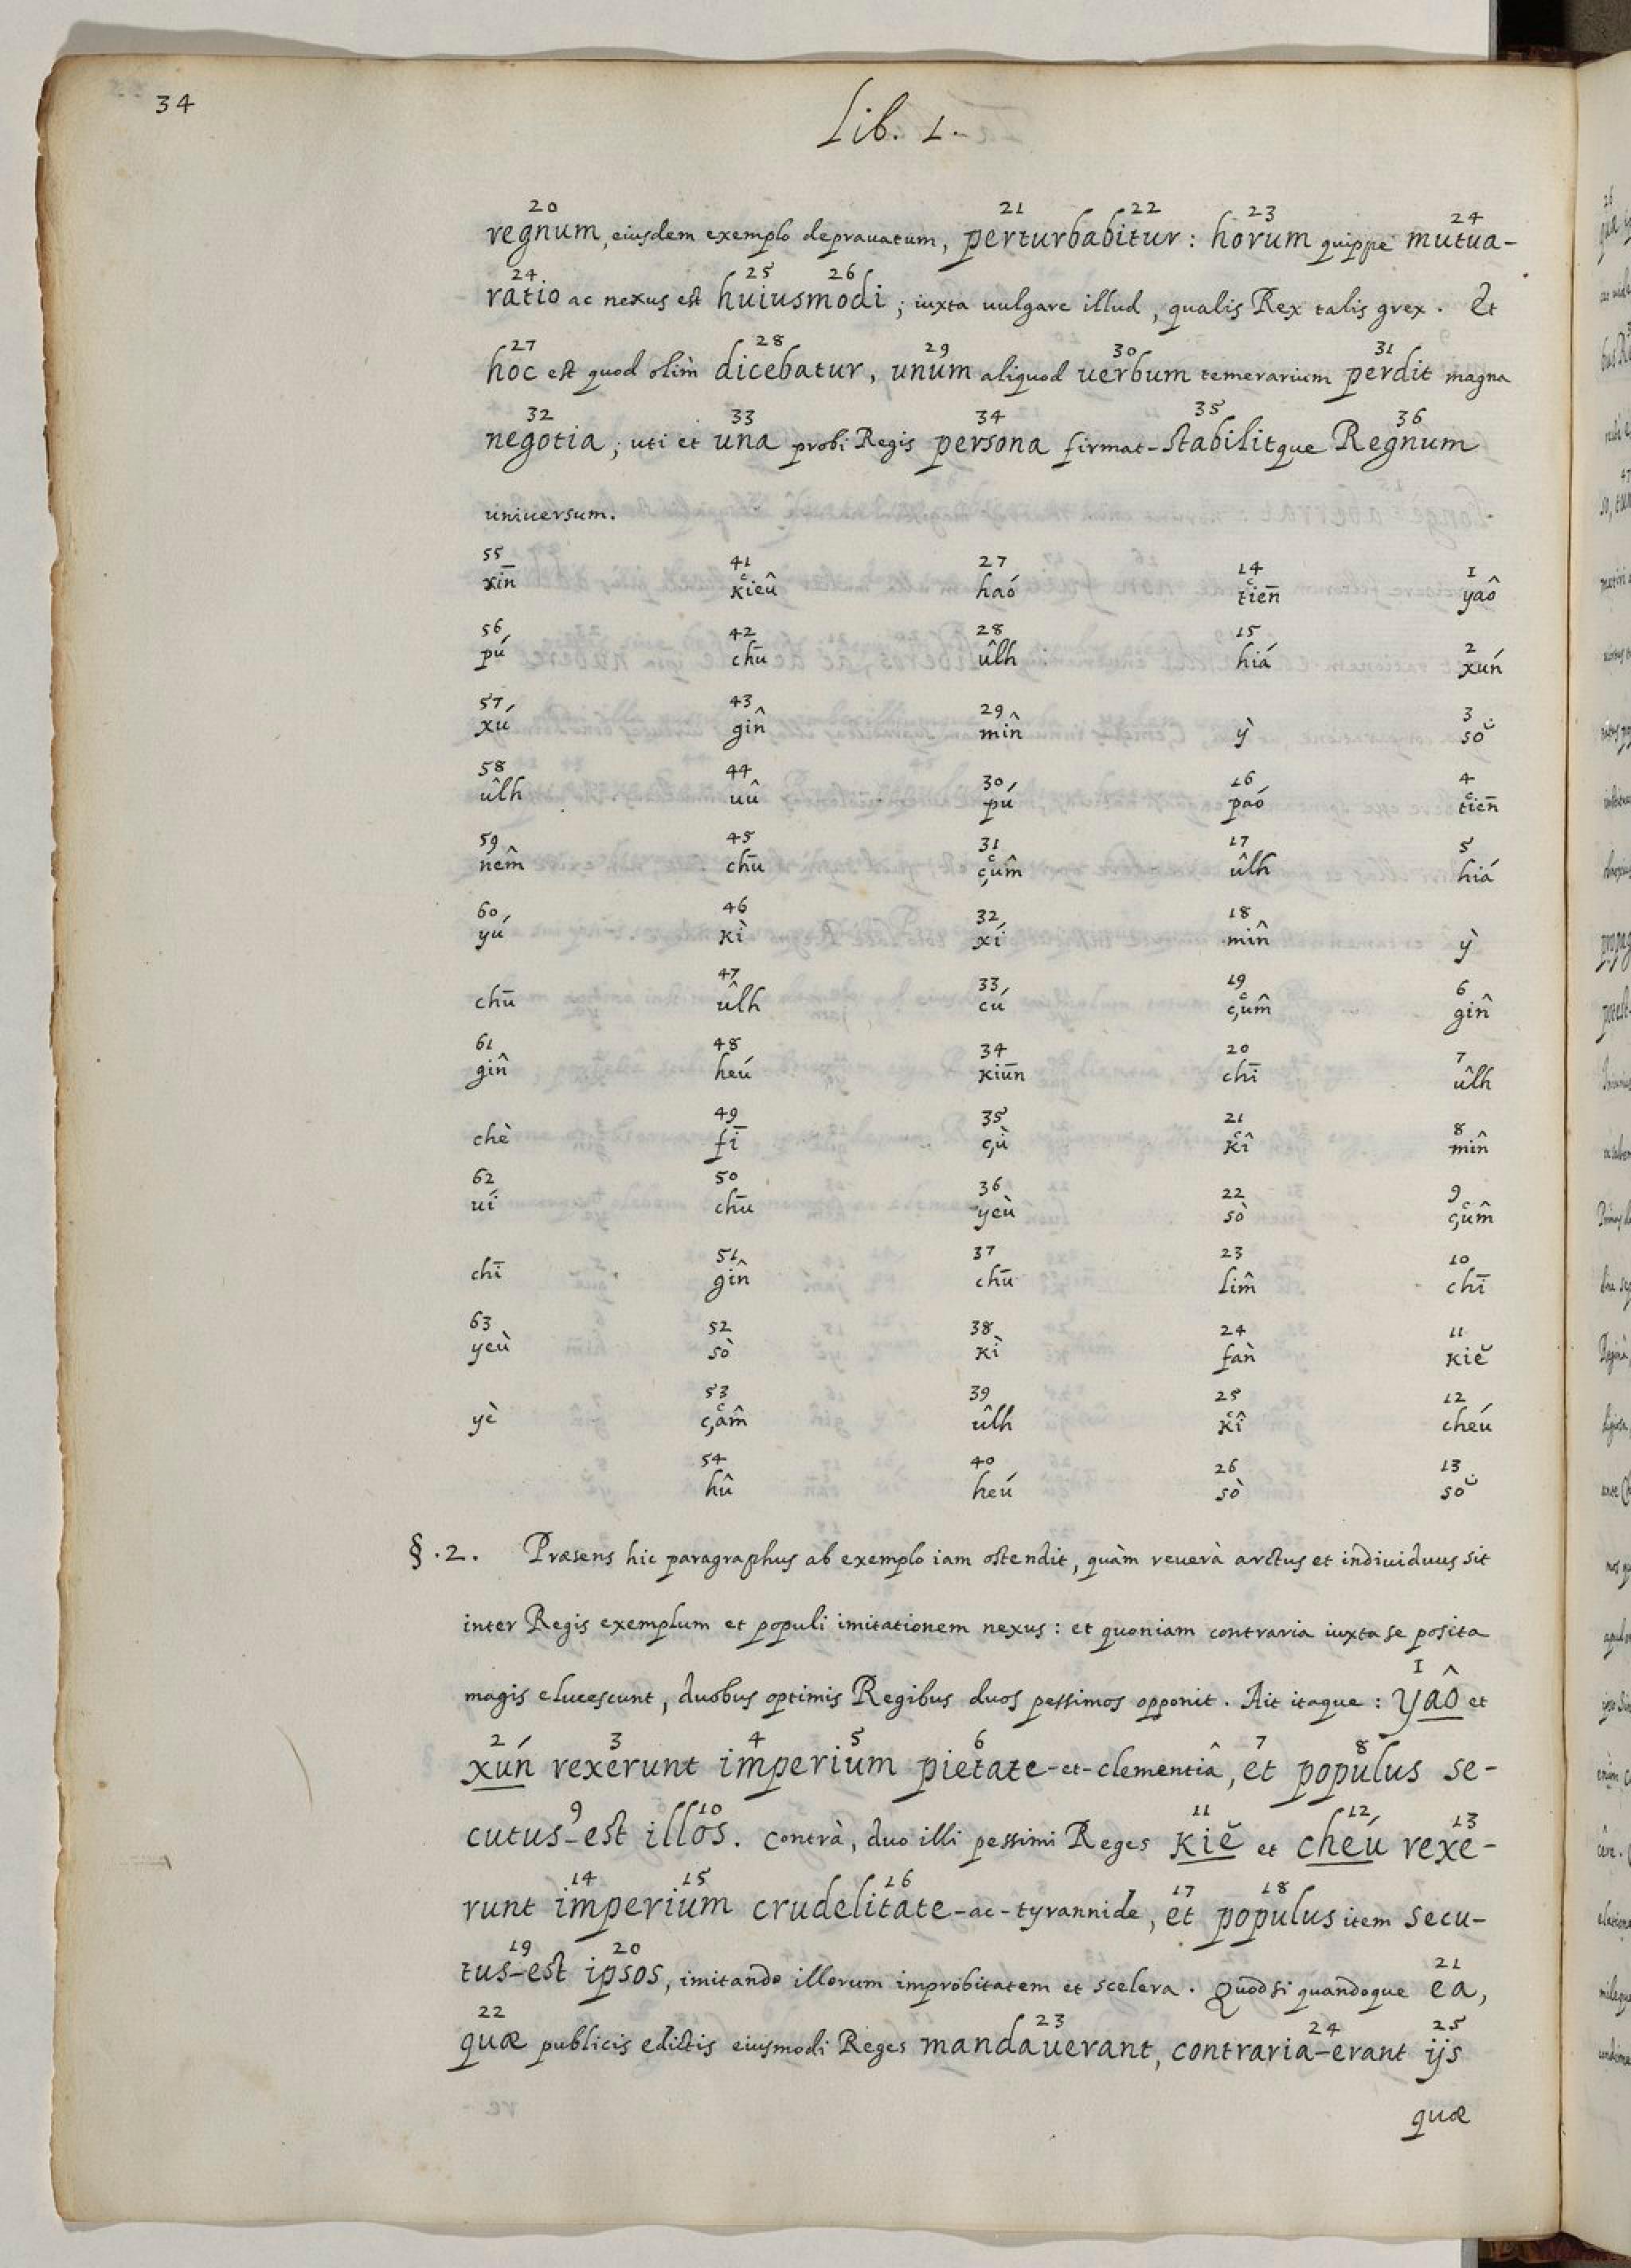 34
Lib. 1.
20 21 22 23 24
regnum, eiusdem exemplo deprauatum, perturbabitur: horum quippe mutua-
24 25 26
ratio ac nexus est huiusmodi; iuxta uulgare illud, qualis Rex talis grex. Et
27 28 29 30 31
hoc est quod olim dicebatur, unum aliquod uerbum temerarium perdit magna
32 33 34 35 36
negotia; uti et una probi Regis persona firmat-stabilitque Regnum
uniuersum.
55 41 27 14 1
xin̄ kieû haó tien̄ yaô
56 42 28 15 2
pú chū ûlh hiá xún
57 43 29 3
xú gin̂ min̂ ỳ sŏ
58 44 30 16 4
ûlh uû pú paó tien̄
59 45 31 17 5
nem̂ chū çum̂ ûlh hiá
60 46 32 18
yú kì xí min̂ ỳ
47 33 19 6
chū ûlh cú çum̂ gin̂
61 48 34 20 7
gin̂ heú kiun̄ chī ûlh
49 35 21 8
chè fī çù kî min̂
62 50 36 22 9
uî chū yeù sò çum̂
51 37 23 10
chī gin̂ chū lim̂ chī
63 52 38 24 11
yeù sò kì fan̄ kiĕ
53 39 25 12
yè çam̂ ûlh kî cheú
54 40 26 13
hû heú sò sŏ
§.2. Præsens hic paragraphus ab exemplo iam ostendit, quàm reuerà arctus et indiuiduus sit
inter Regis exemplum et populi imitationem nexus: et quoniam contraria iuxta se posita
1
magis elucescunt, duobus optimis Regibus duos pessimos opponit. Ait itaque: Yaô et
2 3 4 5 6 7 8
xún rexerunt imperium pietate-et-clementiâ, et populus se-
9 10 11 12 13
cutus-est illos. Contrà, duo illi pessimi Reges kiĕ et cheú rexe-
14 15 16 17 18
runt imperium crudelitate-ac-tyrannide, et populus item secu-
19 20 21
tus-est ipsos, imitando illorum improbitatem et scelera. Quòd si quandoque ea,
22 23 24 25
quæ publicis edictis eiusmodi Reges mandauerant, contraria-erant ijs
quæ